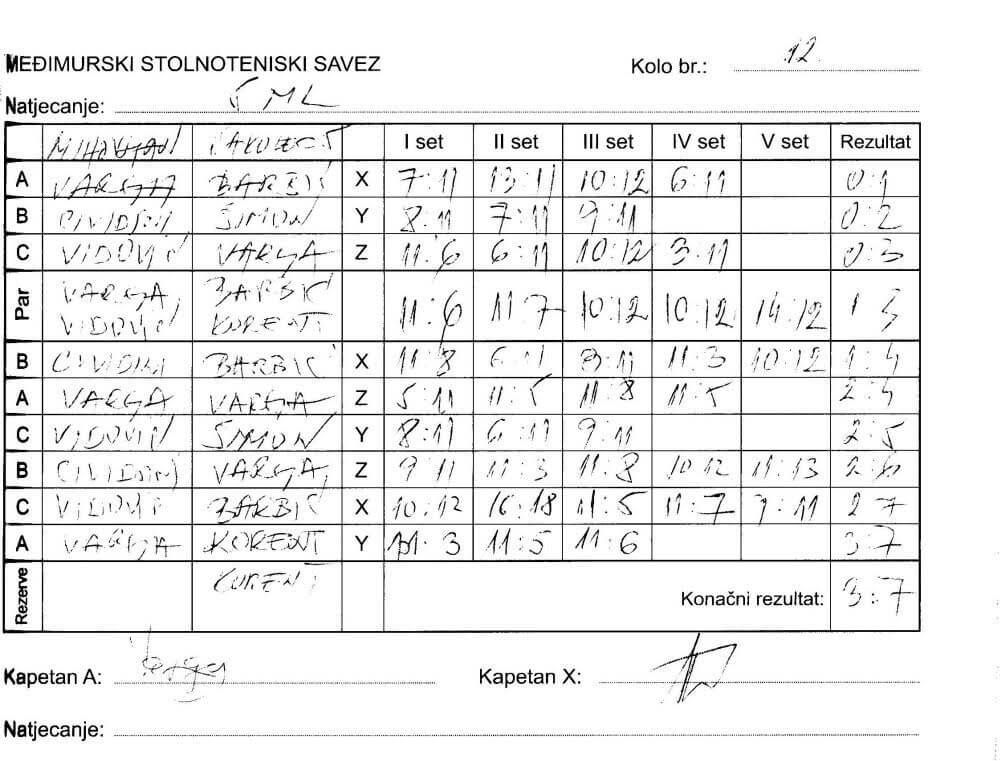 MEĐIMURSKI STOLNOTENISKI SAVEZ Kolo br.: 12.
Natjecanje: ŽML
I set II set III set IV set V set Rezultat
A VARGA BARBIĆ X 7:11 13:11 10:12 6:11 0:1
B CIVIDINI ŠIMON Y 8:11 7:11 9:11 0:2
C VIDOVIĆ VARGA Z 11:6 6:11 10:12 3:11 0:3
Par VARGA, VIDOVIĆ BARBIĆ KORENT 11:6 11:7 10:12 10:12 14:12 1 3
B CIVIDINI BARBIĆ X 11:8 6:11 9:11 11:3 10:12 1:4
A VARGA VARGA Z 5:11 11:5 11:8 11:5 2:4
C VIDOVIĆ ŠIMON Y 8:11 6:11 9:11 2:5
B CIVIDINI VARGA, Z 9 11 11:3 11:8 10 12 11:13 2:6
C VIDOVIĆ BARBIĆ X 10:12 16:18 11:5 11:7 9:11 2 7
A VARGA KORENT Y 11:3 11:5 11:6 3:7
Rezerve KORENT Konačni rezultat: 3:7
Kapetan A: Kapetan X:
Natjecanje: